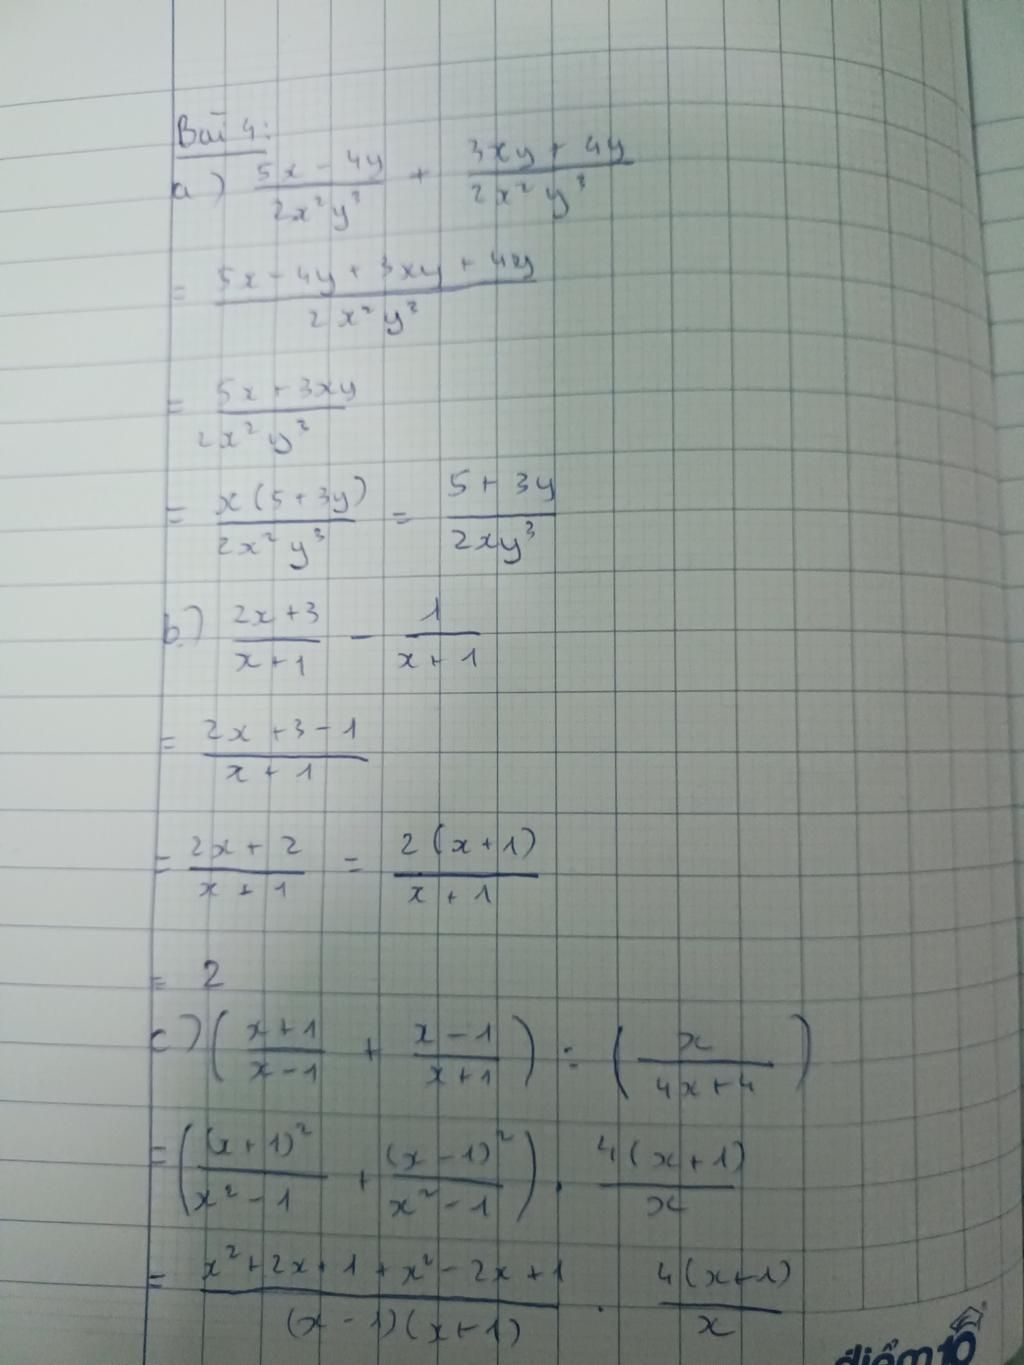 Bài 4:
a) \frac{5x - 4y}{2x²y³} + \frac{3xy + 4y}{2x²y³}
= \frac{5x - 4y + 3xy + 4y}{2x²y³}
= \frac{5x + 3xy}{2x²y³}
= \frac{x(5 + 3y)}{2x²y³} = \frac{5 + 3y}{2xy³}
b) \frac{2x + 3}{x + 1} - \frac{1}{x + 1}
= \frac{2x + 3 - 1}{x + 1}
= \frac{2x + 2}{x + 1} = \frac{2(x + 1)}{x + 1}
= 2
c) (\frac{x + 1}{x - 1} + \frac{x - 1}{x + 1}) : (\frac{x}{4x + 4})
= (\frac{(x + 1)²}{x² - 1} + \frac{(x - 1)²}{x² - 1}) . \frac{4(x + 1)}{x}
= \frac{x² + 2x + 1 + x² - 2x + 1}{(x - 1)(x + 1)} . \frac{4(x + 1)}{x}
điểm10